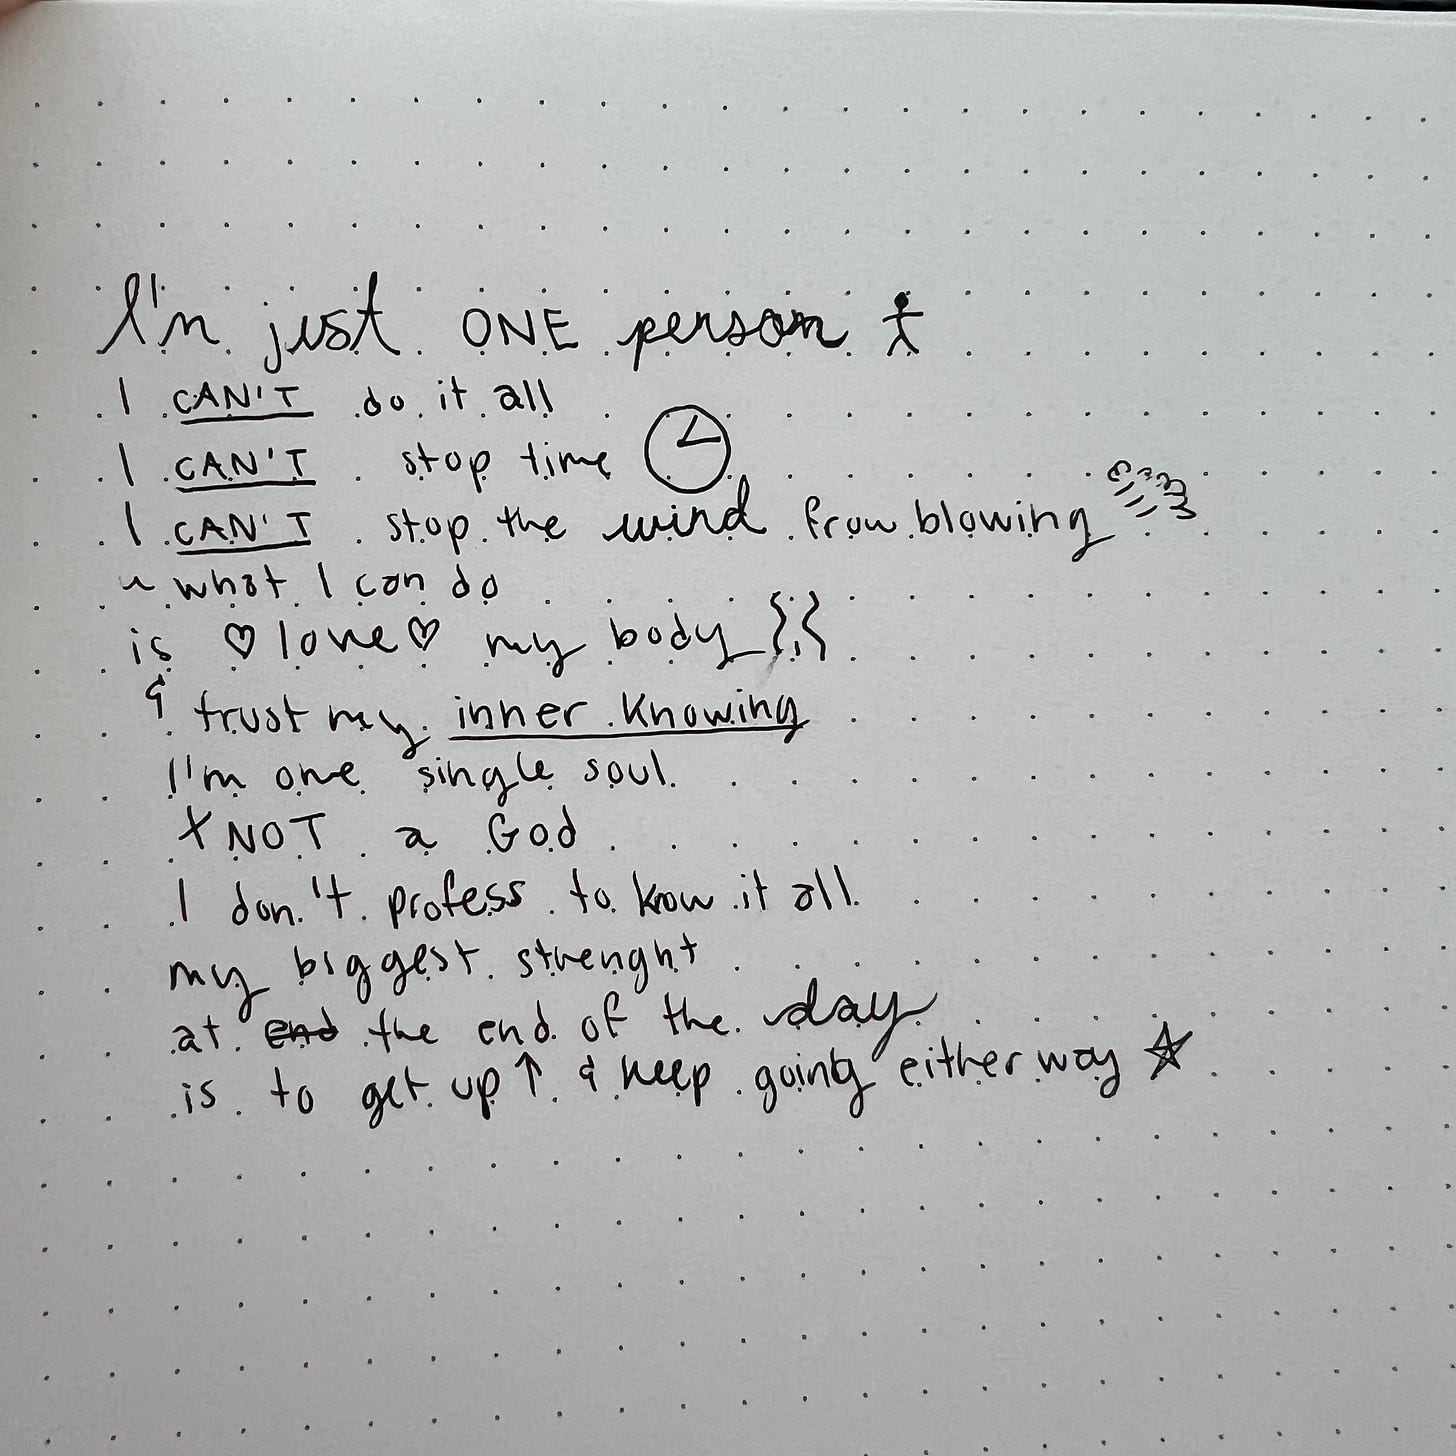 I'm just ONE person
I CAN'T do it all
I CAN'T stop time
I CAN'T stop the wind from blowing
~ what I can do
is ♡ love ♡ my body
& trust my inner knowing
I'm one single soul
X NOT a God
I don't profess to know it all
my biggest strenght
at end the end of the day
is to get up ↑ & keep going either way ☆